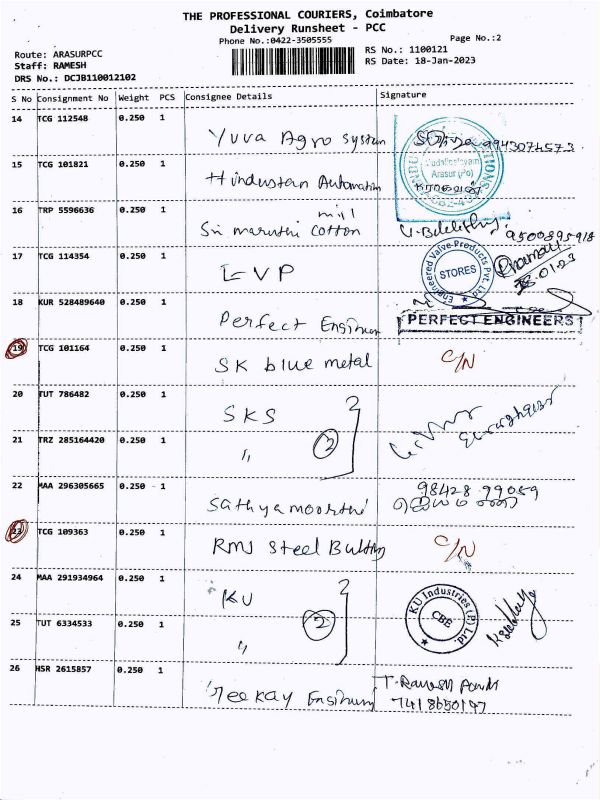 THE PROFESSIONAL COURIERS, Coimbatore
Delivery Runsheet - PCC
Phone No.:0422-3505555
Page No.:2
Route: ARASURPCC
Staff: RAMESH
DRS No.: DCJB110012102
RS No.: 1100121
RS Date: 18-Jan-2023
S No Consignment No Weight PCS Consignee Details Signature
14 TCG 112548 0.250 1
Yuva Agro System 9943074573
15 TCG 101821 0.250 1
Hindustan Automation Arasur (Po)
16 TRP 5596636 0.250 1
Sri maruthi Cotton mill 9500895918
17 TCG 114354 0.250 1
LVP Engineered Valve-Products Pvt. Ltd STORES
18 KUR 528489640 0.250 1
Perfect Engineers PERFECT ENGINEERS
19 TCG 101164 0.250 1
SK blue metal C/N
20 TUT 786482 0.250 1
SKS 2
21 TRZ 285164420 0.250 1
"
22 MAA 296305665 0.250 1
Sathyamoorthi 98428 99059
23 TCG 109363 0.250 1
RMS Steel C/N
24 MAA 291934964 0.250 1
KU 2 KU Industries (P) Ltd CBE
25 TUT 6334533 0.250 1
"
26 HSR 2615857 0.250 1
Teekay T. Ramesh
7418650147